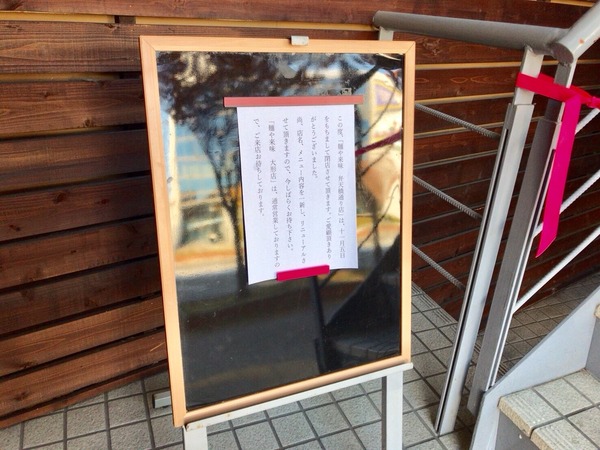 この度、「麺や来味　弁天橋通り店」は、十一月五日
をもちまして閉店させて頂きます。ご愛顧頂きあり
がとうございました。
尚、店名、メニュー内容を一新し、リニューアルさ
せて頂きますので、今しばらくお待ち下さい。
「麺や来味　大形店」は、通常営業しておりますの
で、ご来店お待ちしております。